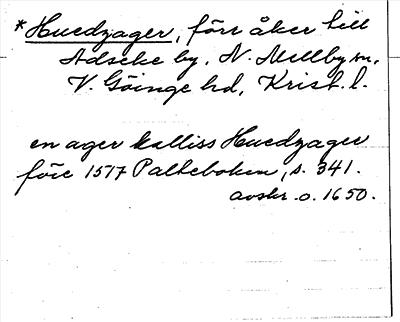 *Huedzager, förr åker till
Adseke by, N. Mellby sn,
V. Göinge hd, Krist. l.
en ager kalliss Huedzager
före 1517 Palteboken, s. 341.
avskr. o. 1650.